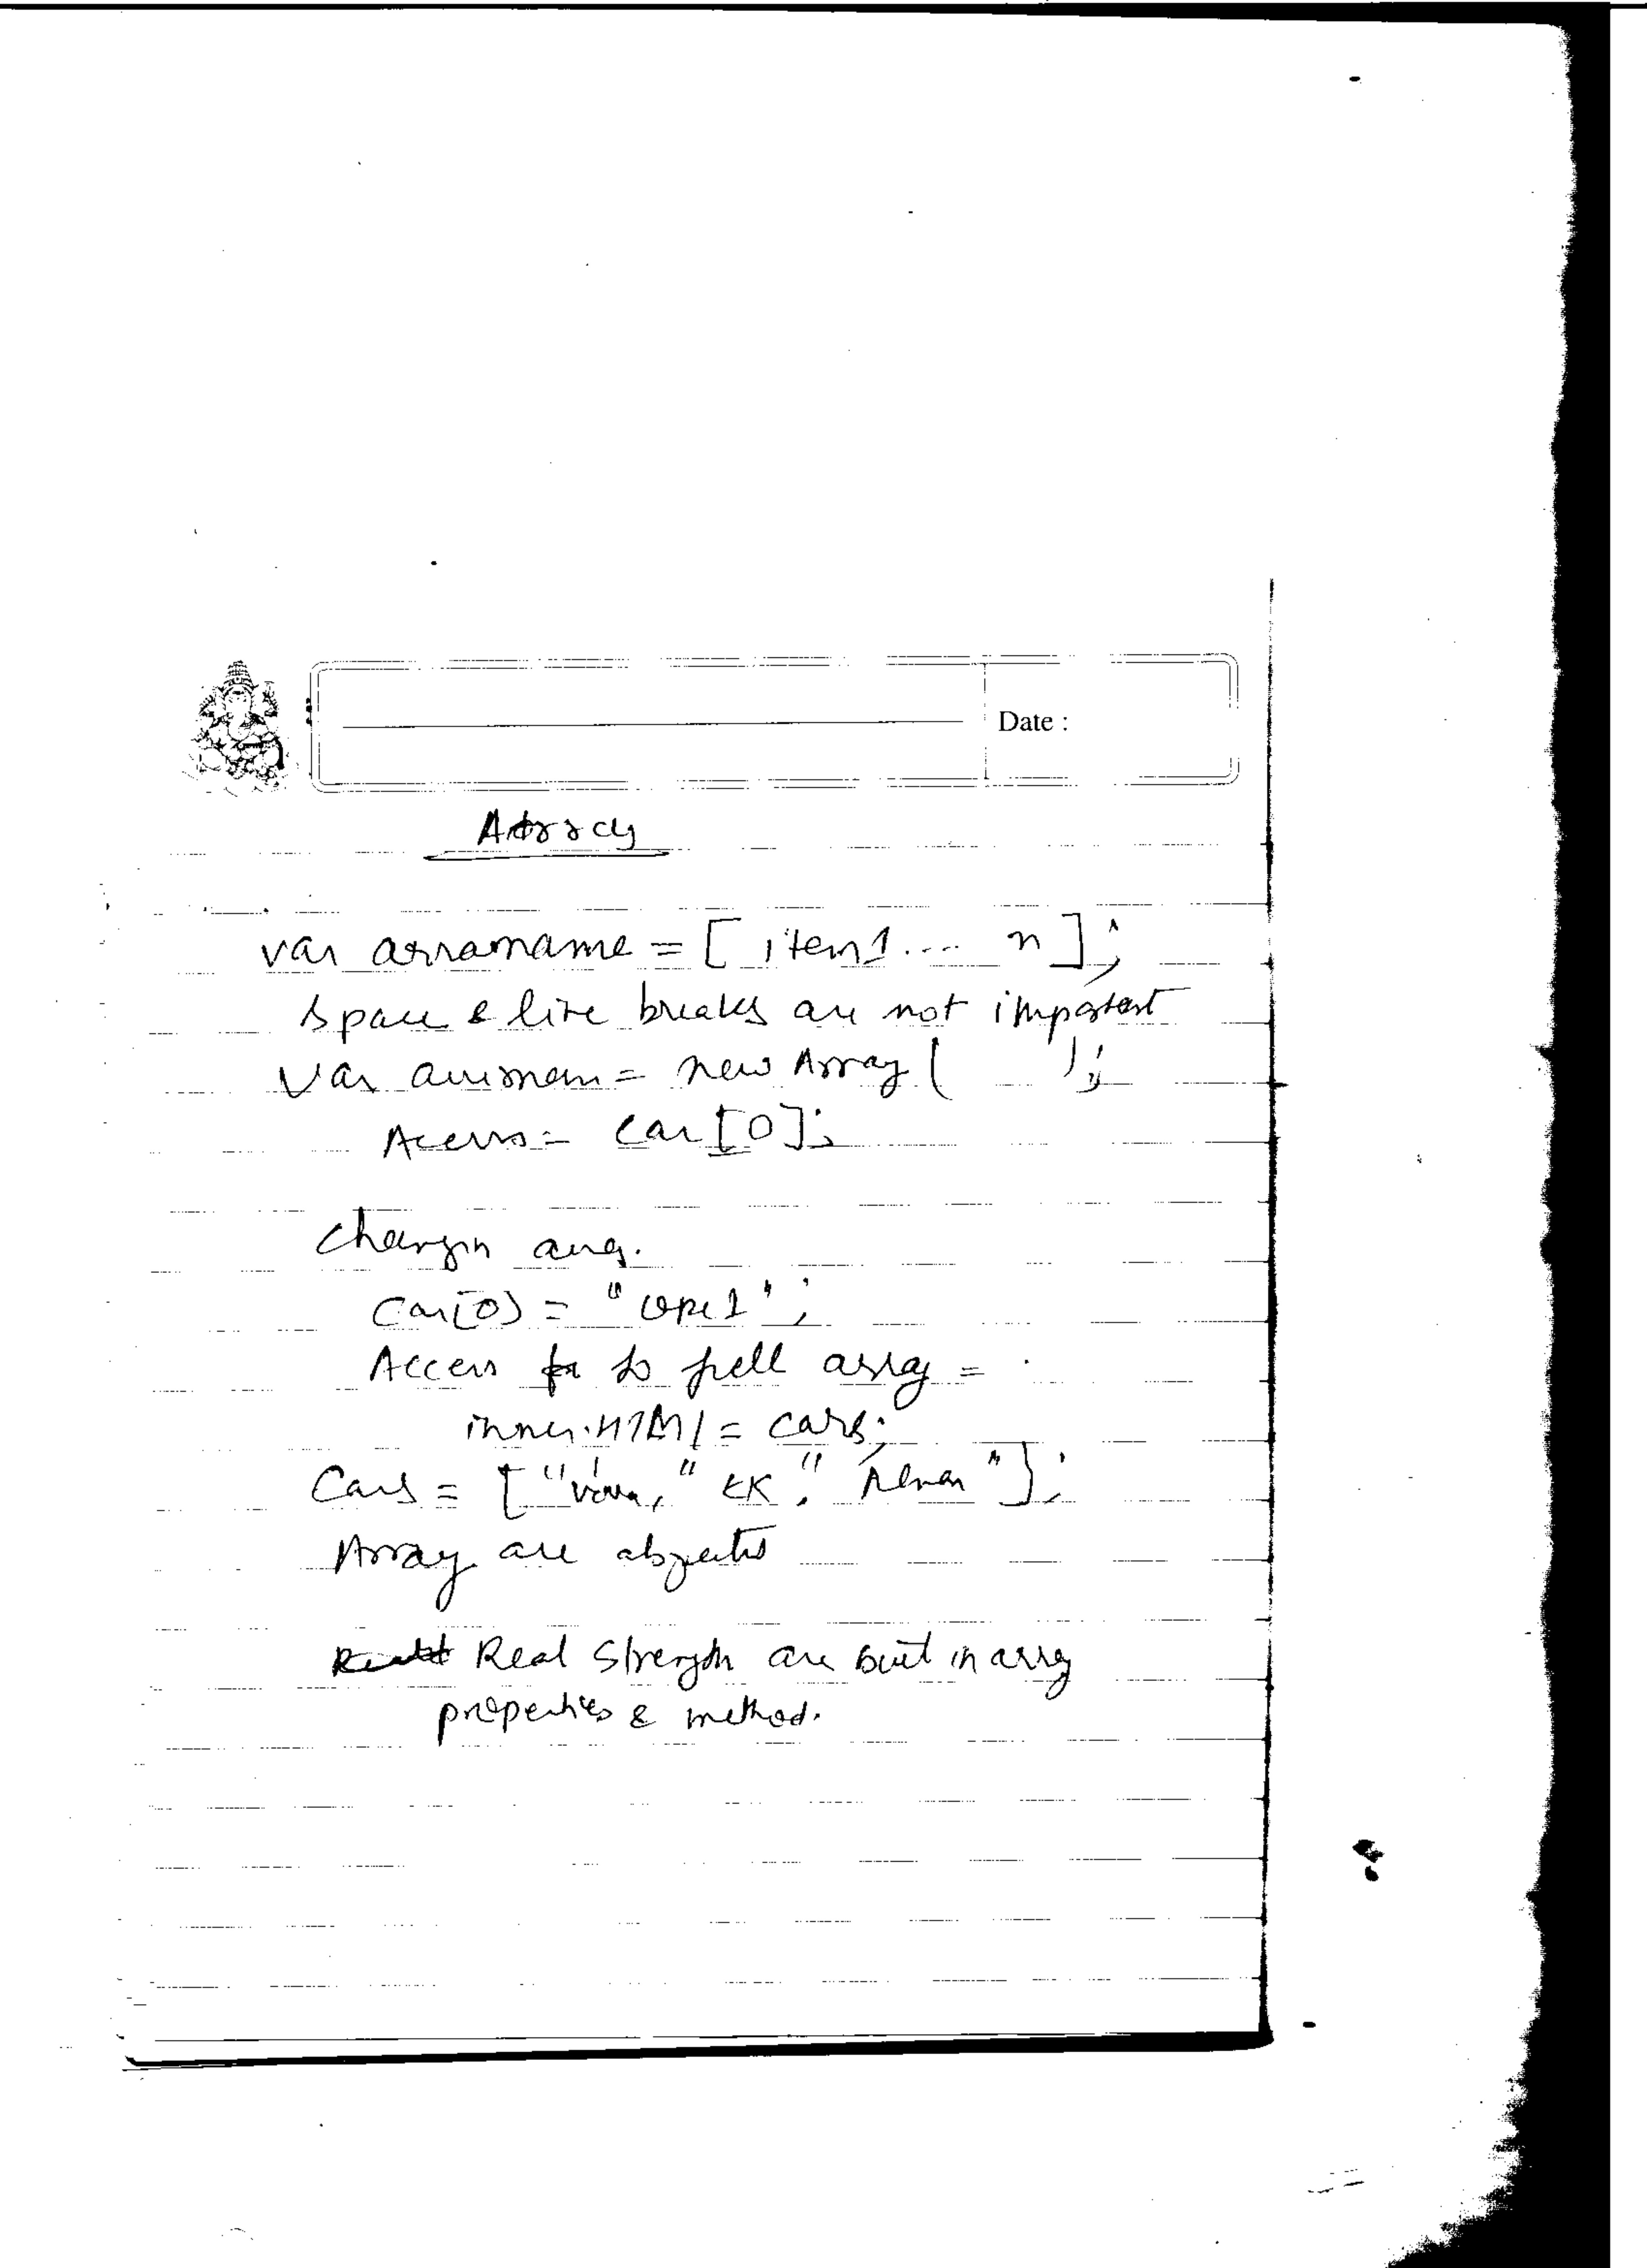 Date :
Array
var arraname = [ item1.... n ];
Space & line breaks are not important
Var = new Array ( );
Access = Car[0];
Changin array.
Car[0] = "opel";
Access to full array =
inner.HTML = cars;
Cars = [" , " KK ", " "];
Array are objects
Real Strength are buit in array
properties & method.